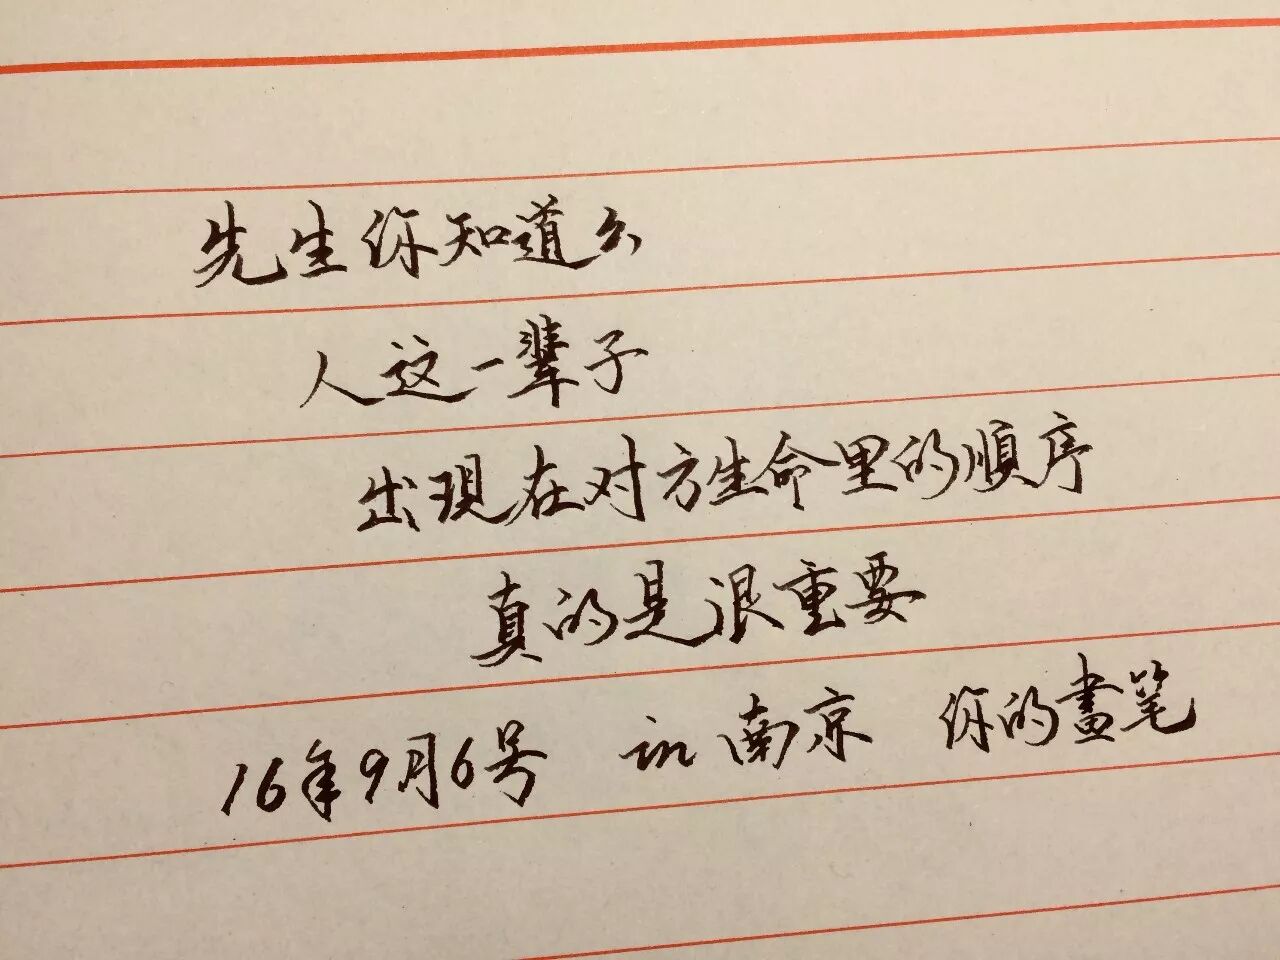 先生你知道么
人这一辈子
出現在对方生命里的順序
真的是很重要
16年9月6号 in 南京 你的畫笔